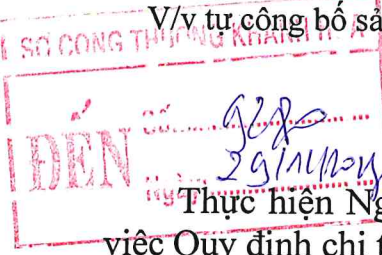 V/v tự công bố sả
SỞ CÔNG THƯƠNG KHÁNH
ĐẾN
Số
Ngày
Thực hiện Ng
việc Quy định chi t